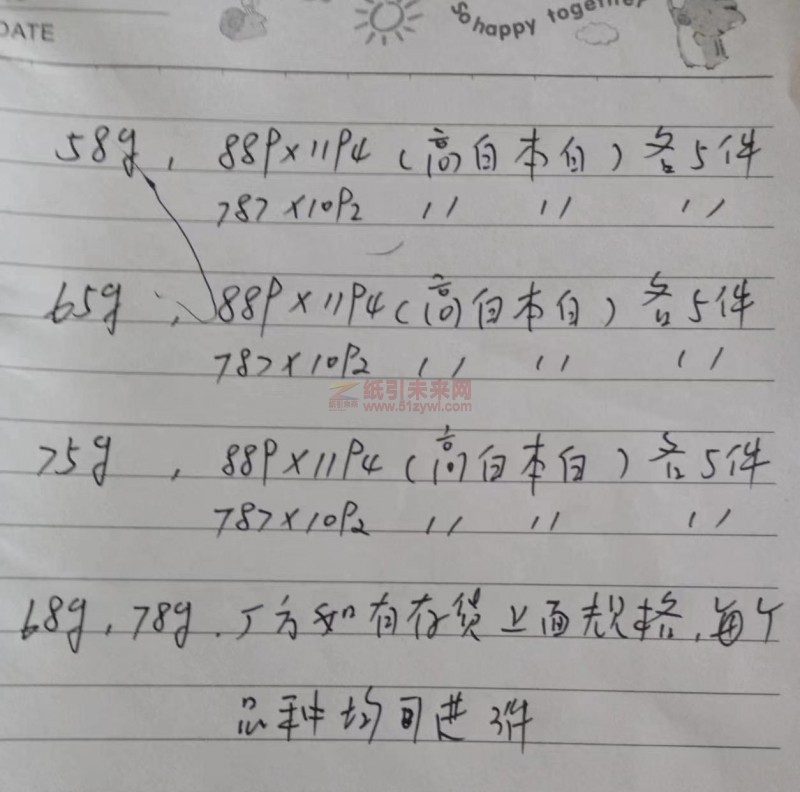 DATE
So happy together
58g, 889×1194(高白本白)各5件
787×1092 〃 〃 〃
65g, 889×1194(高白本白)各5件
787×1092 〃 〃 〃
纸引未来网
www.51zywl.com
75g, 889×1194(高白本白)各5件
787×1092 〃 〃 〃
68g, 78g. 厂方如有存货上面规格, 每个
品种均可进3件